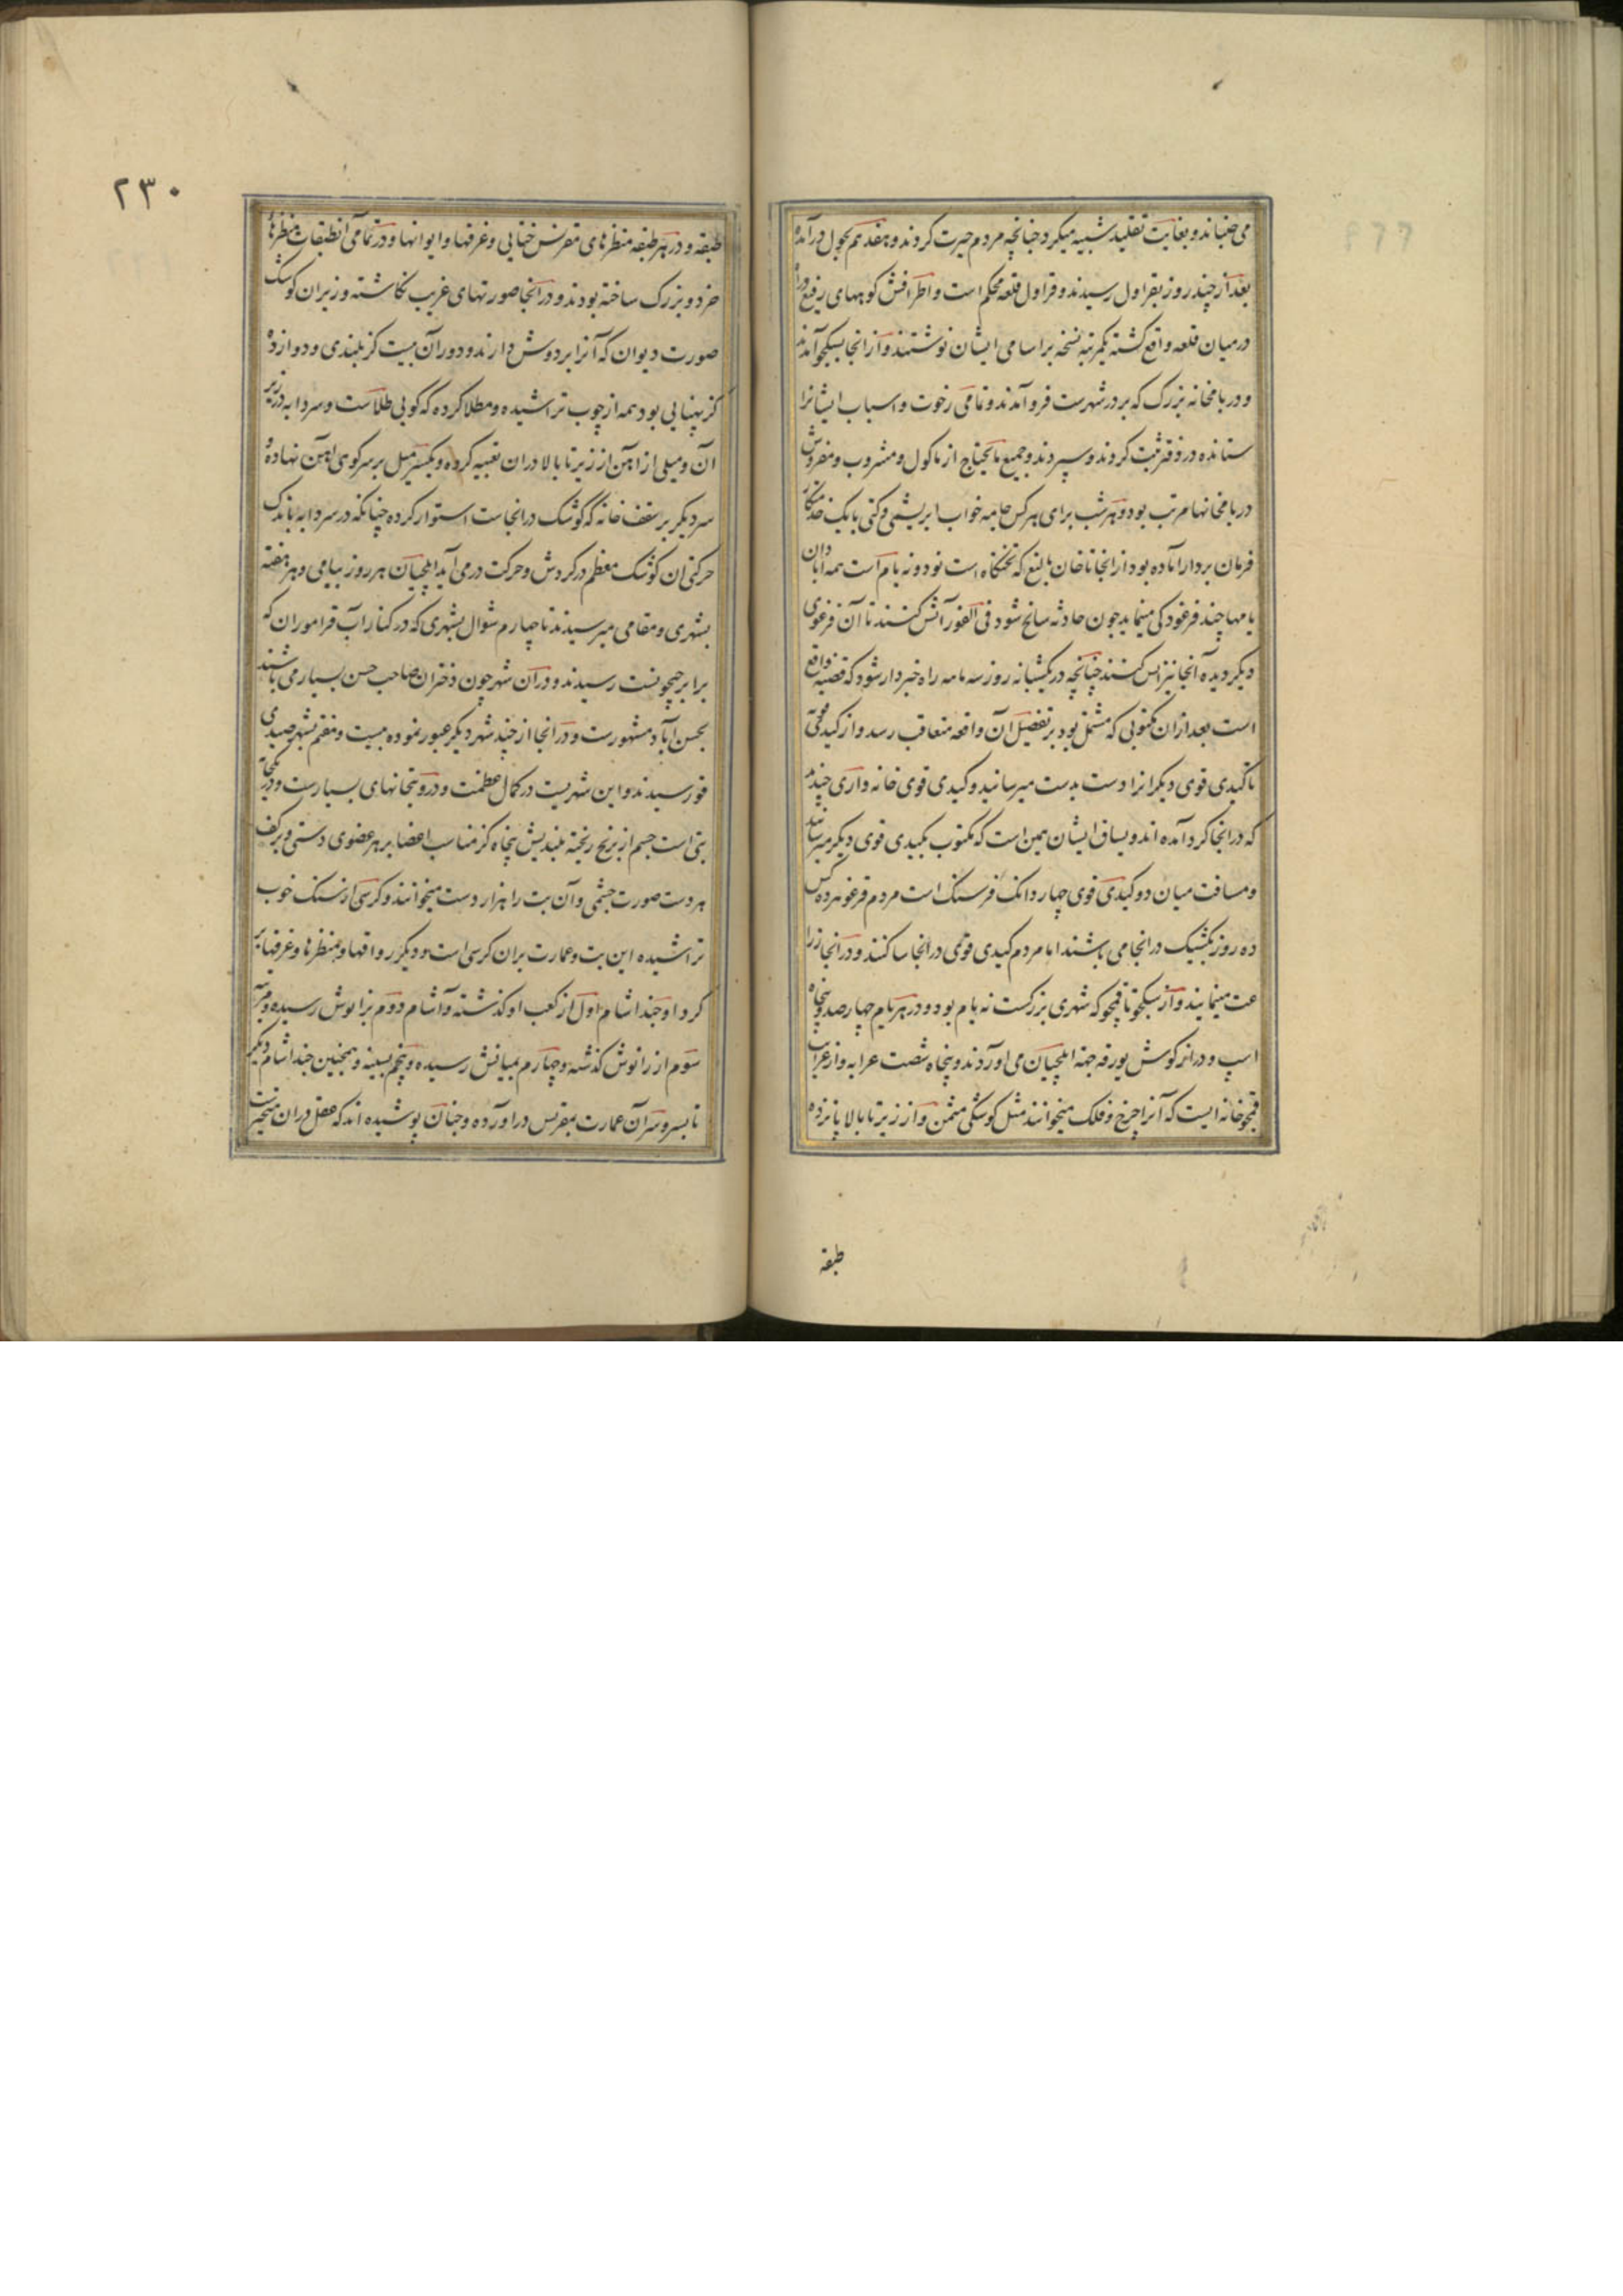 می جنباند و بغایت تقلید شبیه میکرد چنانچه مردم حیرت کردند و هفدهم بچول درآمده
بعد از چند روز بقراول رسیدند و قراول قلعه محکم است و اطرافش کوههای رفیع و راه
در میان قلعه واقع کشته یکمرتبه نسخه بر اسامی ایشان نوشتند و از انجا بسکجو آمدند
و در یامخانه بزرک که بر در شهرست فرو آمدند و تمامی رخوت و اسباب ایشانرا
ستانده در دفتر ثبت کردند و سپردند و جمیع مایحتاج از ماکول و مشروب و مفروش
در یامخانها مرتب بود و هر شب برای هر کس جامه خواب ابریشمی و کتی با یک خدمتکار
فرمان بردار اماده بود از انجا تا خان بالیغ که تختکاه است نود و نه یام است همه ابادان
یامها چند قرغو دکی مینماید چون حادثه سانح شود فی الفور آتش کنند تا آن قرغوی
دیکر دیده آنجا نیز اتش کنند چنانچه در یکشبانه روز سه ماهه راه خبردار شود که قضیه واقع
است بعد ازان مکتوبی که مشتمل بود بر تفضیل آن واقعه متعاقب رسد و از کیدی قویی
تا کیدی قوی دیکر انرا دست بدست میرسانید و کیدی قوی خانه واری چندند
که در انجا کرد آمده اند و یساق ایشان همین است که مکتوب بکیدی قوی دیکر میرسانند
و مسافت میان دو کیدی قوی چهار دانک فرسنک است مردم قرغو هر ده کس
ده روز بکشیک در انجا می باشند اما مردم کیدی قوی در انجا ساکنند و در انجا زرا
عت مینمایند و از سکجو تا قمجو که شهری بزرکست نه یام بود و در هر یام چهار صد و پنجاه
اسپ و دراز کوش یورقه جهه ایلچیان می آوردند و پنجاه شصت عرابه و از غرایب
قمجو خانه ایست که آنرا چرخ و فلک میخوانند مثل کوشکی مثمن و از زیر تا بالا پانزده
طبقه
۲۳۰
طبقه و در هر طبقه منظرهای مقرنس ختایی و غرفها و ایوانها و در تمامی آنطبقات منظرهاء
خرد و بزرک ساخته بودند و در انجا صورتهای غریب نکاشته و زیر ان کوشک
صورت دیوان که آنرا بر دوش دارند و دور آن بیست کز بلندی و دوازده
کز پهنایی بود همه از چوب تراشیده و مطلا کرده که کویی طلاست و سردابه در زیر
آن و میلی از آهن از زیر تا بالا دران تعبیه کرده و یکسر میل بر سر کوی اهن نهاده و
سر دیکر بر سقف خانه که کوشک در انجاست استوار کرده چنانکه در سردابه باندک
حرکتی ان کوشک معظم در کردش و حرکت در می آید ایلچیان هر روز بیامی و هر هفته
بشهری و مقامی میرسیدند تا چهارم شوال بشهری که در کنار آب قراموران که
برابر جیحونست رسیدند و دران شهر چون دختران صاحب حسن بسیار می باشند
بحسن آباد مشهورست و در انجا از چند شهر دیکر عبور نموده بیست و هفتم بشهر صیدی
فور رسیدند و این شهریست در کمال عظمت و درو بتخانهای بسیارست و در بتکجا
بتی است جسم از برنج ریخته بلندیش پنجاه کز مناسب اعضا بر هر عضوی دستی و بر کف
هر دست صورت چشمی و آن بت را هزار دست میخوانند و کرسی از سنک خوب
تراشیده این بت و عمارت بران کرسی است و دیکر رواقها و منظرها و غرفها بر
کرد او چند اشام اول از کعب او کذشته و آشام دوم بزانوش رسیده و مرتبه
سوم از زانوش کذشته و چهارم بمیانش رسیده و پنجم بسینه و همچنین چند اشام دیکر
تا بسر و سر آن عمارت بمقرنس در اورده و چنان پوشیده اند که عقل دران متحیرست